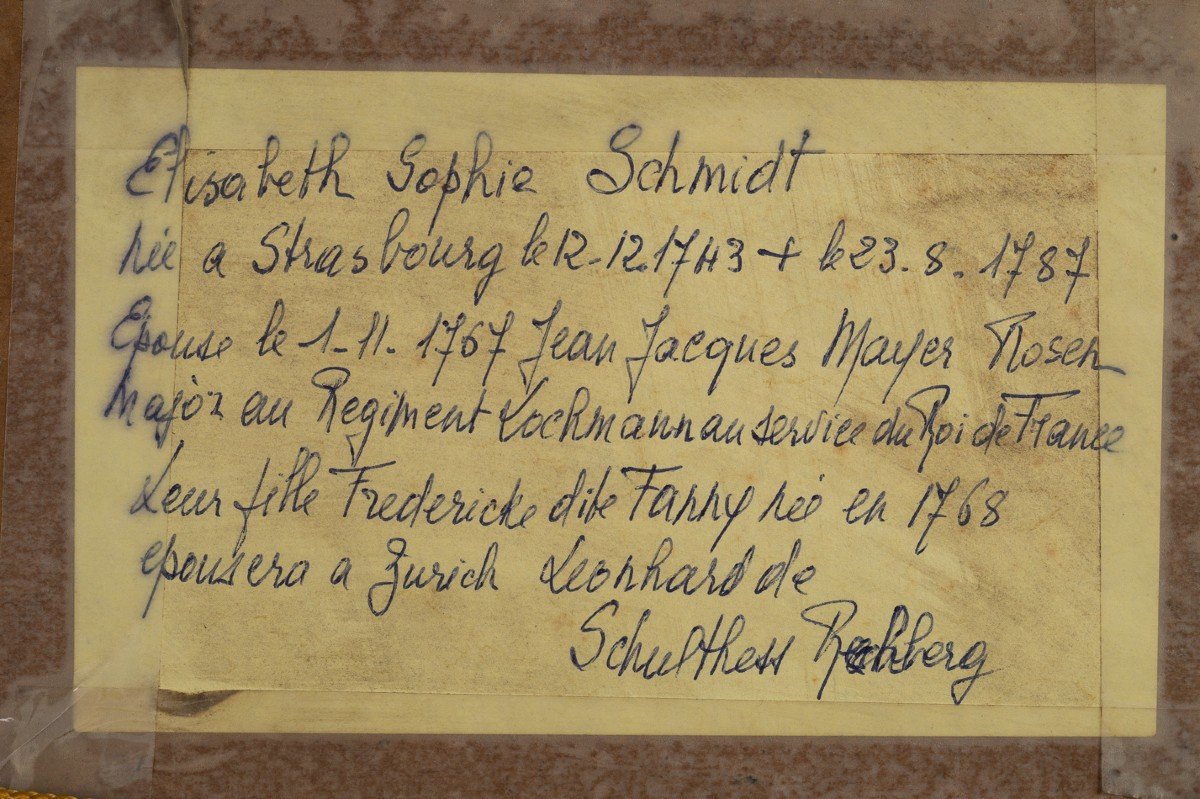 Elisabeth Sophie Schmidt
née a Strasbourg le 12-12.1743 + le 23.8.1787
Epouse le 1-11.1767 Jean Jacques Mayer Rosen
Major au Regiment Lochmann au service du Roi de France
Leur fille Fredericke dite Fanny née en 1768
epousera a Zurich Leonhard de
Schulthess Rechberg